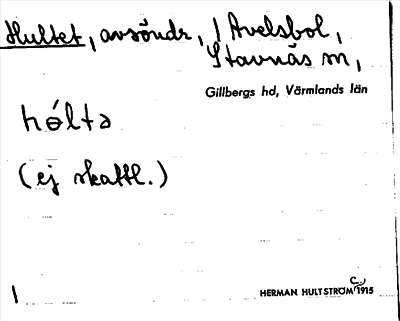 Hultet, avsöndr., 1 Avelsbol,
Stavnäs sn,
Gillbergs hd, Värmlands län
hólta
(ej skattl.)
HERMAN HULTSTRÖM c. 1915